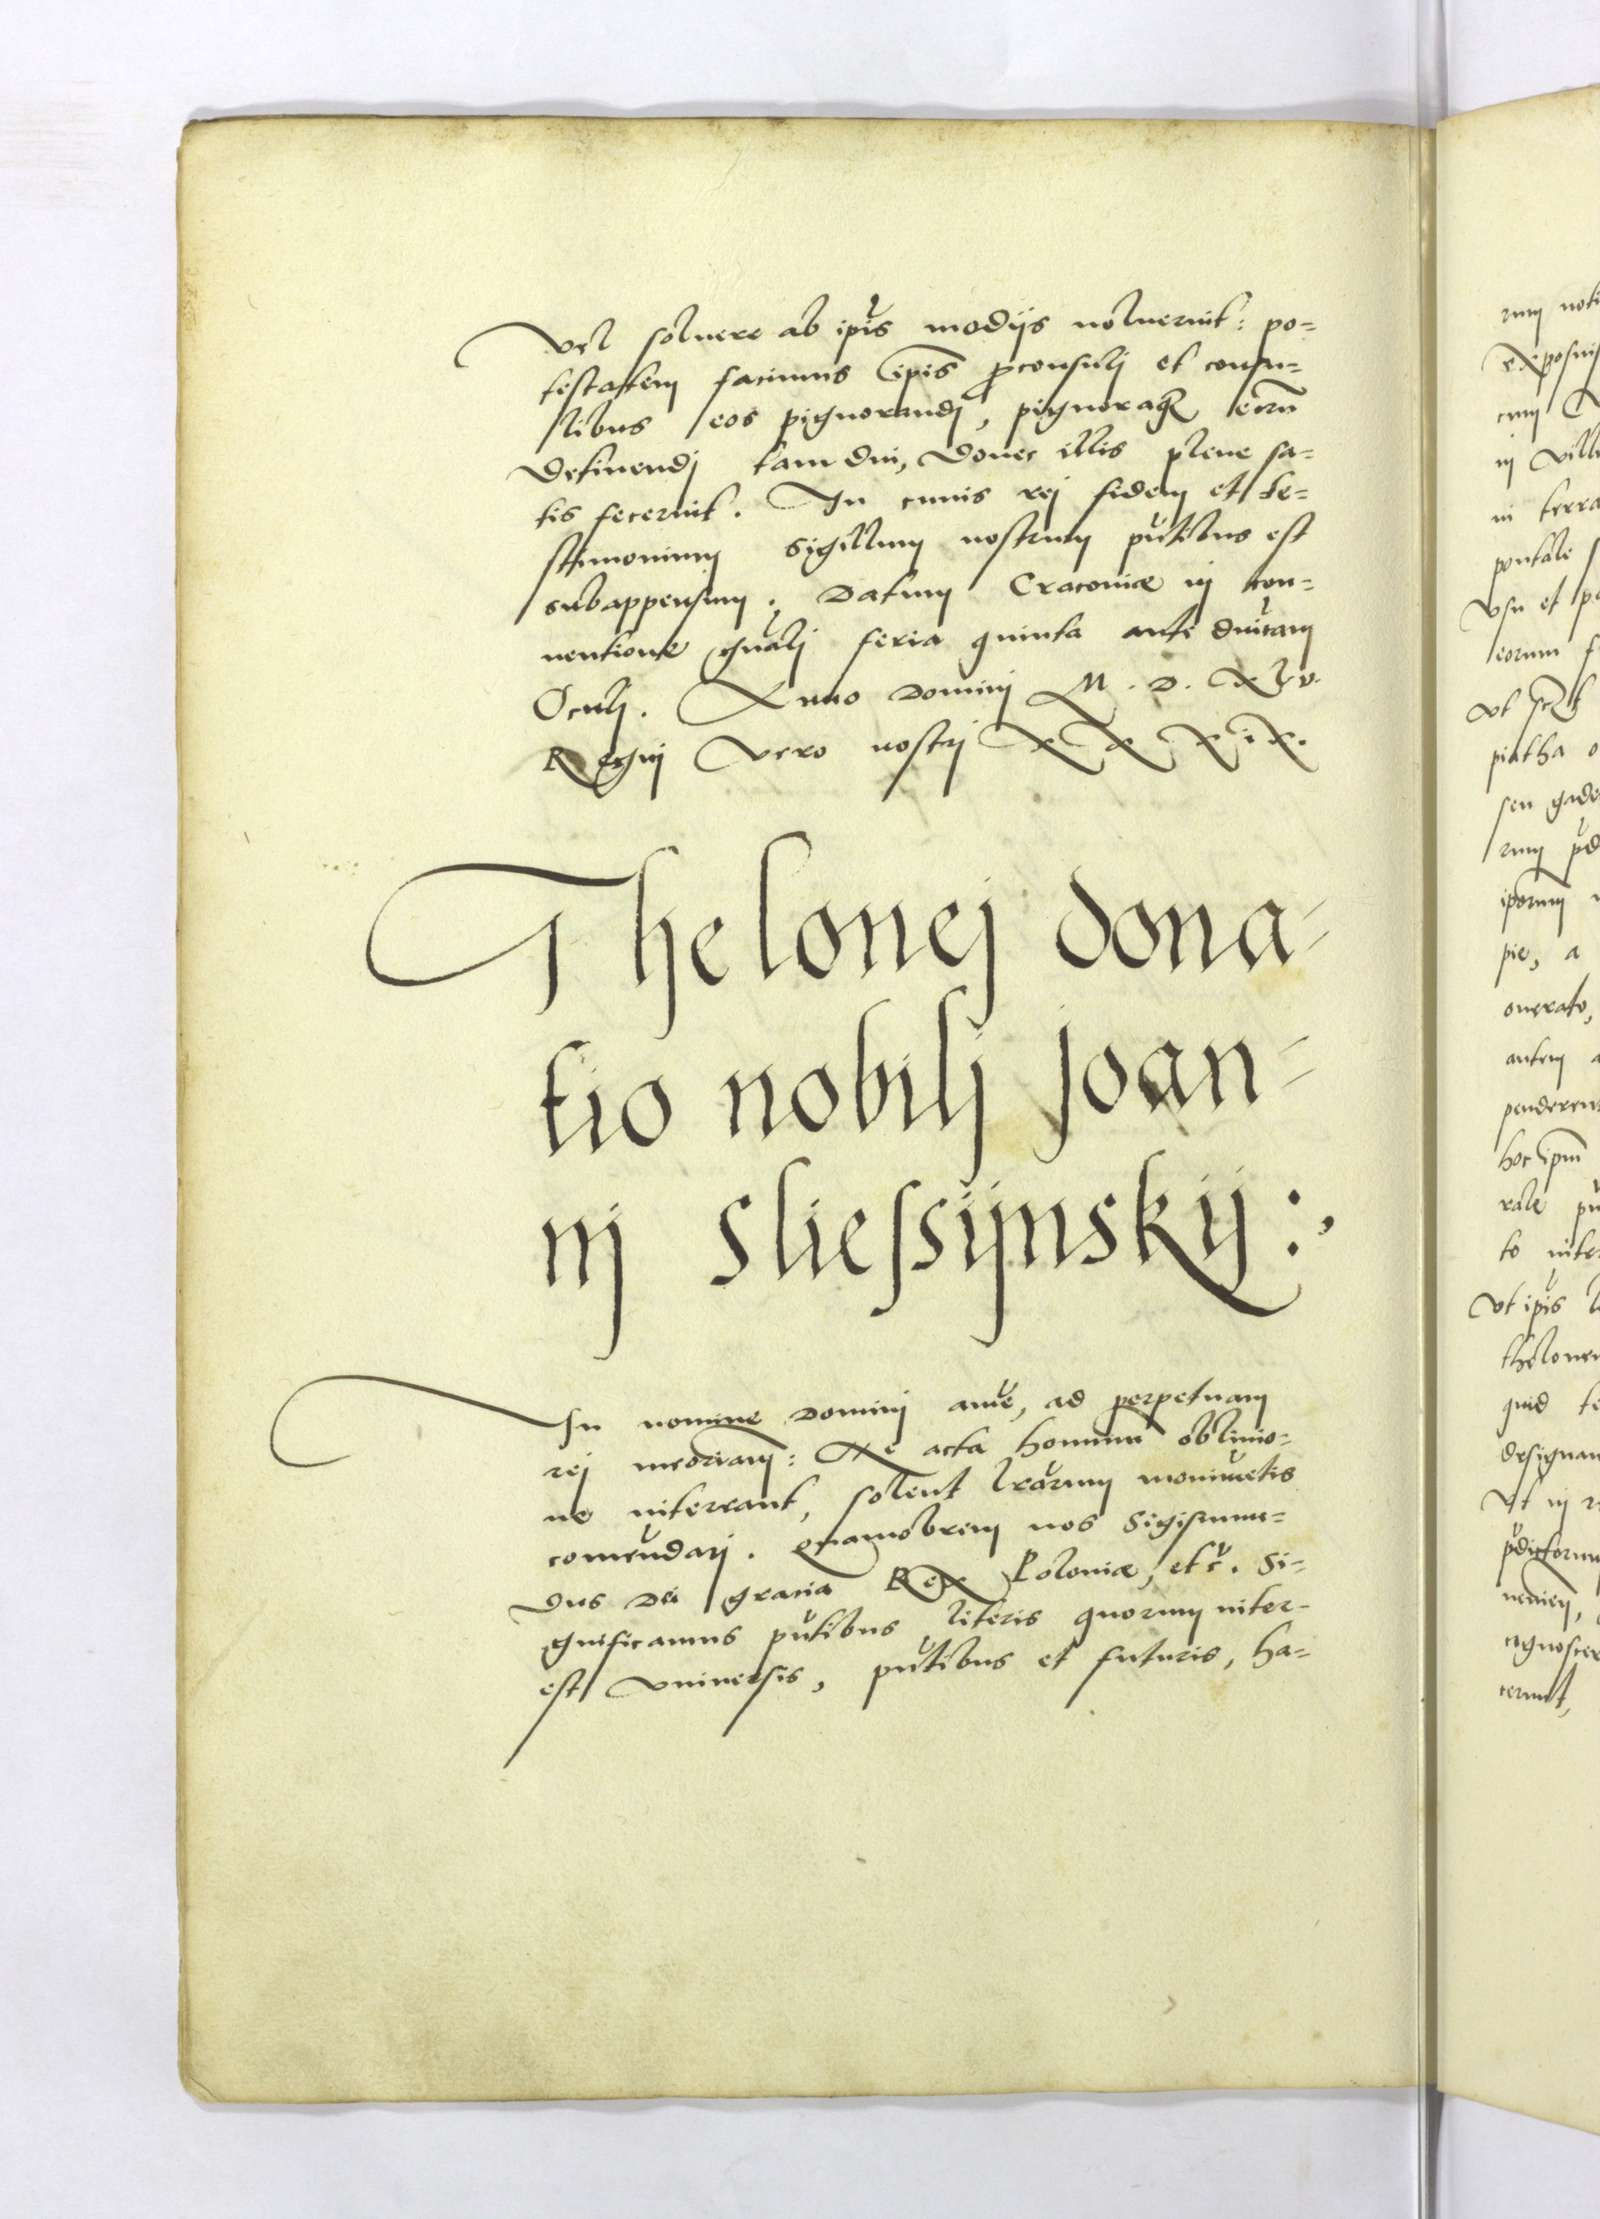 vel soluere ab ip̃is modijs noluerint: po=
testatem facimus ip̃is ꝓconsulj et consu=
libus eos pignorandj, pignoraqꝫ eorũ
detinendj tam diu, donec illis plene sa=
tis fecerint. In cuius rej fidem et te=
stimonium sigillum nostrum pñtibus est
subappensum. Datum Cracouiæ in con=
uentione gñalj feria quinta ante dñicam
Oculj. Anno Dominj M. D. XLV.
Regnj vero nostrj XXXIX.
Thelonej dona=
tio nobilj Joan=
nj Sliessijnskij:,
In nomine Dominj amẽ, ad perpetuam
rej memoriam: Ne acta hominum obliuio=
ne intereant, solent lrãrum monimẽtis
comẽndarj. Quamobrem nos Sigismun=
dus Dei gracia Rex Poloniæ, etc̃. Si=
gnificamus pñtibus literis quorum inter=
est vniuersis, pñtibus et futuris, ha=
rum noti
exposuis
cum
in villa
in terra
pontale
vsu et po
eorum
vt
piatha
seu gade
rum pd
iporum
pie, a
onerato,
autem a
penderent
hoc ipm̃
rale
to inter
vt ipĩs
thelone
quid te
designan
vt in
pdictorum
uenien,
cognoscer
cerunt,